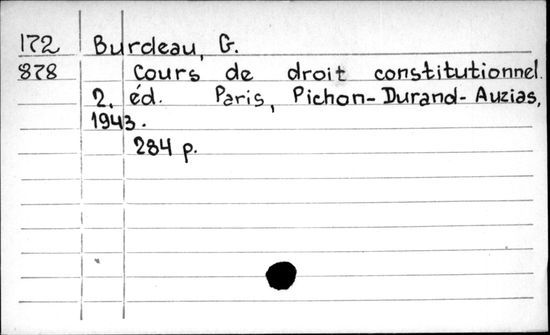 172 Burdeau, G.
878 Cours de droit constitutionnel.
2. éd. Paris, Pichon-Durand-Auzias,
1943.
284 p.